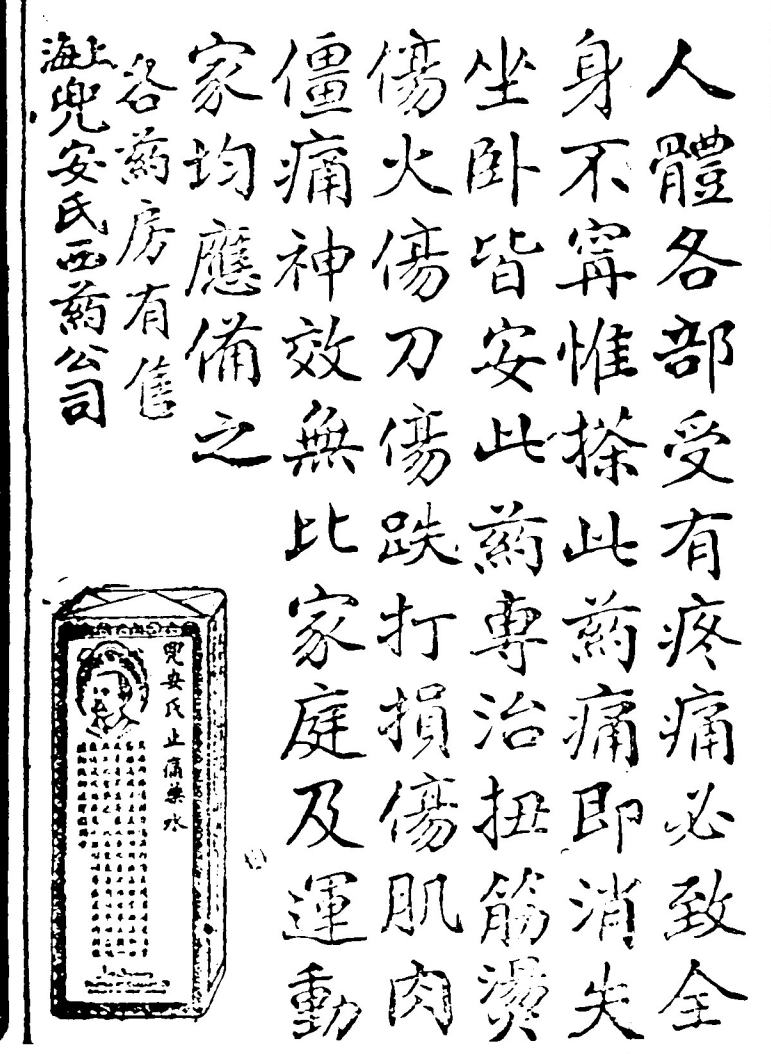 人體各部受有疼痛必致全
身不寗惟搽此葯痛即消失
坐卧皆安此葯專治扭筋燙
傷火傷刀傷跌打損傷肌肉
僵痛神效無比家庭及運動
家均應備之
各葯房有售
上海兜安氏西葯公司
兜安氏止痛藥水